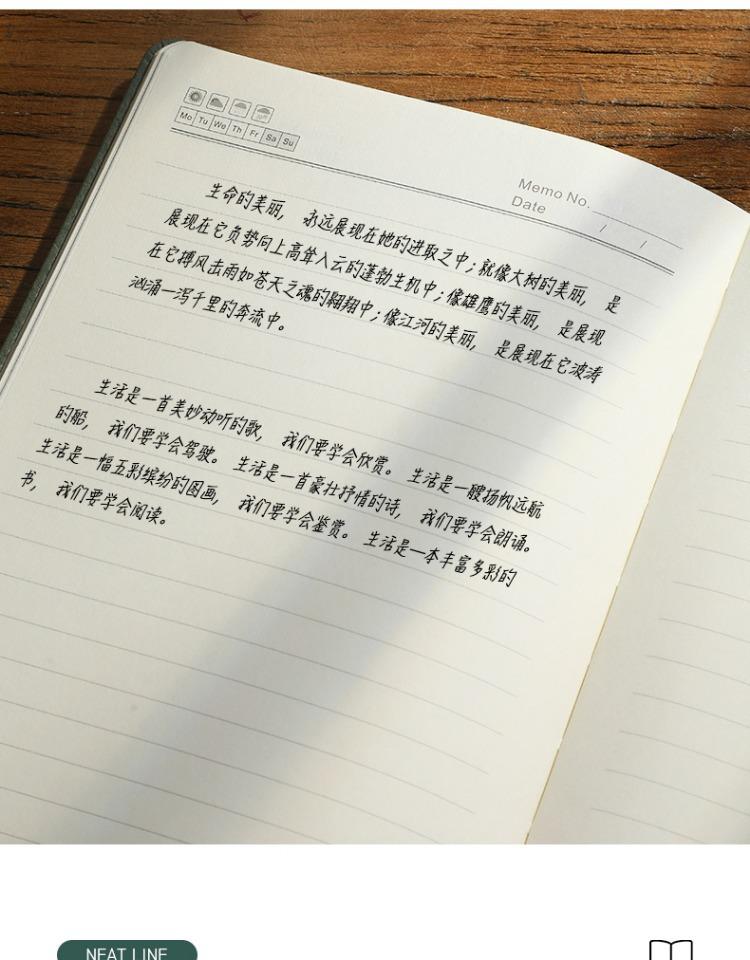 Mo Tu We Th Fr Sa Su
Memo No.
Date / /
生命的美丽，永远展现在她的进取之中；就像大树的美丽，是
展现在它负势向上高耸入云的蓬勃生机中；像雄鹰的美丽，是展现
在它搏风击雨如苍天之魂的翱翔中；像江河的美丽，是展现在它波涛
汹涌一泻千里的奔流中。
生活是一首美妙动听的歌，我们要学会欣赏。生活是一艘扬帆远航
的船，我们要学会驾驶。生活是一首豪壮抒情的诗，我们要学会朗诵。
生活是一幅五彩缤纷的图画，我们要学会鉴赏。生活是一本丰富多彩的
书，我们要学会阅读。
NEAT LINE